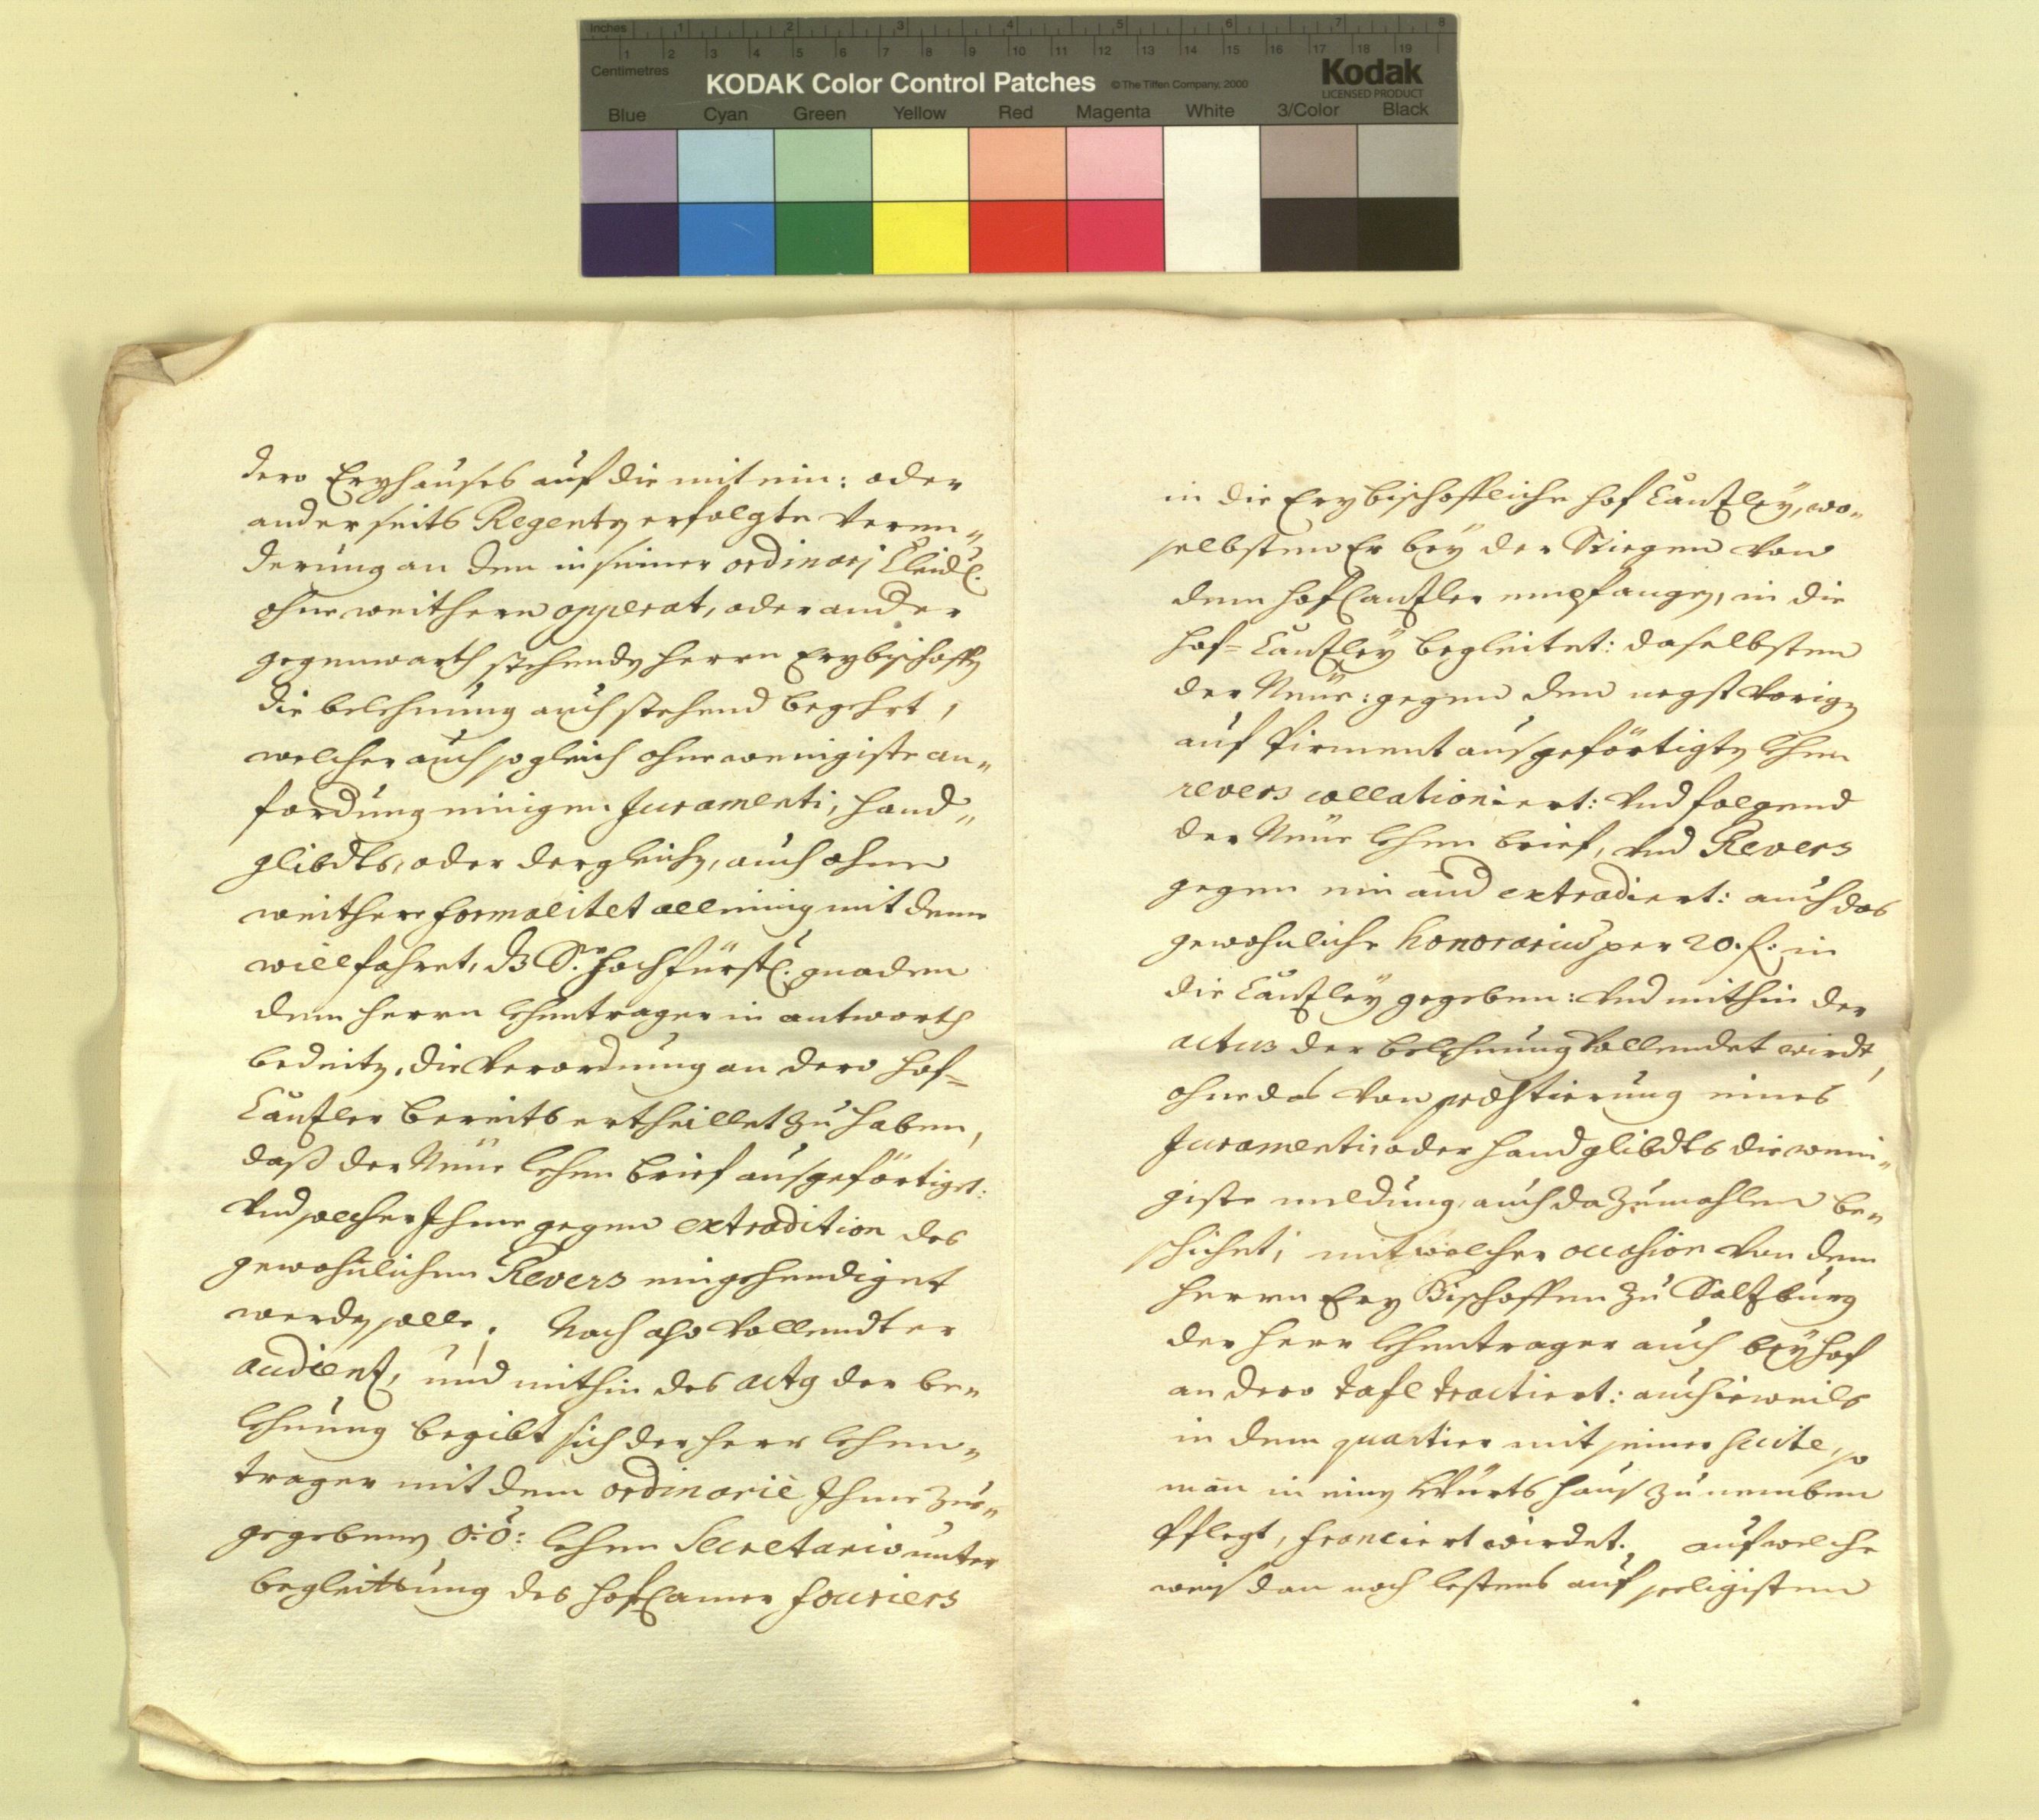 Inches 1 2 3 4 5 6 7 8
Centimetres 1 2 3 4 5 6 7 8 9 10 11 12 13 14 15 16 17 18 19
KODAK Color Control Patches © The Tiffen Company, 2000 Kodak
LICENSED PRODUCT
Blue Cyan Green Yellow Red Magenta White 3/Color Black
dero Erzhauses auf die mit ein: oder
anderseits Regenten erfolgte veren„
derung an den in seiner ordinari Claidl.
ohne weithern apperat, oder ander
gegenwarth stehenden herrn Erzbischoffen
die belehnung auch stehend begehrt,
welcher auch sogleich ohne wenigiste an„
fordung einigen Juramenti, hand„
glibdts, oder dergleichen, auch ohne
weithere formalitet alleinig mit deme
willfahret, dz Sr. hochfürstl. gnaden
dem herrn lehentrager in antworth
bedeiten, die verordnung an dero hof=
Canzler bereits ertheillet zu haben,
daß der Neüe lehen brief ausgeförtiget:
Vnd solcher Ihme gegen extradition des
gewohnlichen Revers eingehendiget
werden solle. Nach also vollendter
audienz, und mithin des actus der be„
lehnung begibt sich der herr lehen„
trager mit dem ordinarie Ihme zue„
gegebenen O:Ö: lehen Secretario unter
begleittung des hofCamer fouriers
in die Erzbischoffliche hof Canzley, wo„
selbsten Er bey der Stiegen von
dem hofCanzler empfangen, in die
hof=Canzley begleitet: daselbsten
der Neüe: gegen den negst vorigen
auf Pirment ausgefördtigten lehen
revers collationiert: Vnd folgend
der Neüe lehen brief, vnd Revers
gegen ein and extradiert: auch das
gewohnliche honorarium per 20. f: in
die Canzley gegeben: Vnd mithin der
actus der belehnung vollendet wirdt,
ohne das von præstierung eines
Juramenti, oder hand glibdts die weni„
giste meldung auch dazumahlen be„
schihet; mit welcher occasion von dem
herrn Erz Bischoffen zu Salzburg
der herr lehentrager auch bey hof
an dero tafl tractiert: auch ieweils
in dem quartier mit seiner suite, so
man in einen Würtshaus zu nemben
Pflegt, franciert wirdet. auf welche
weis dan noch lestens auf seeligisten